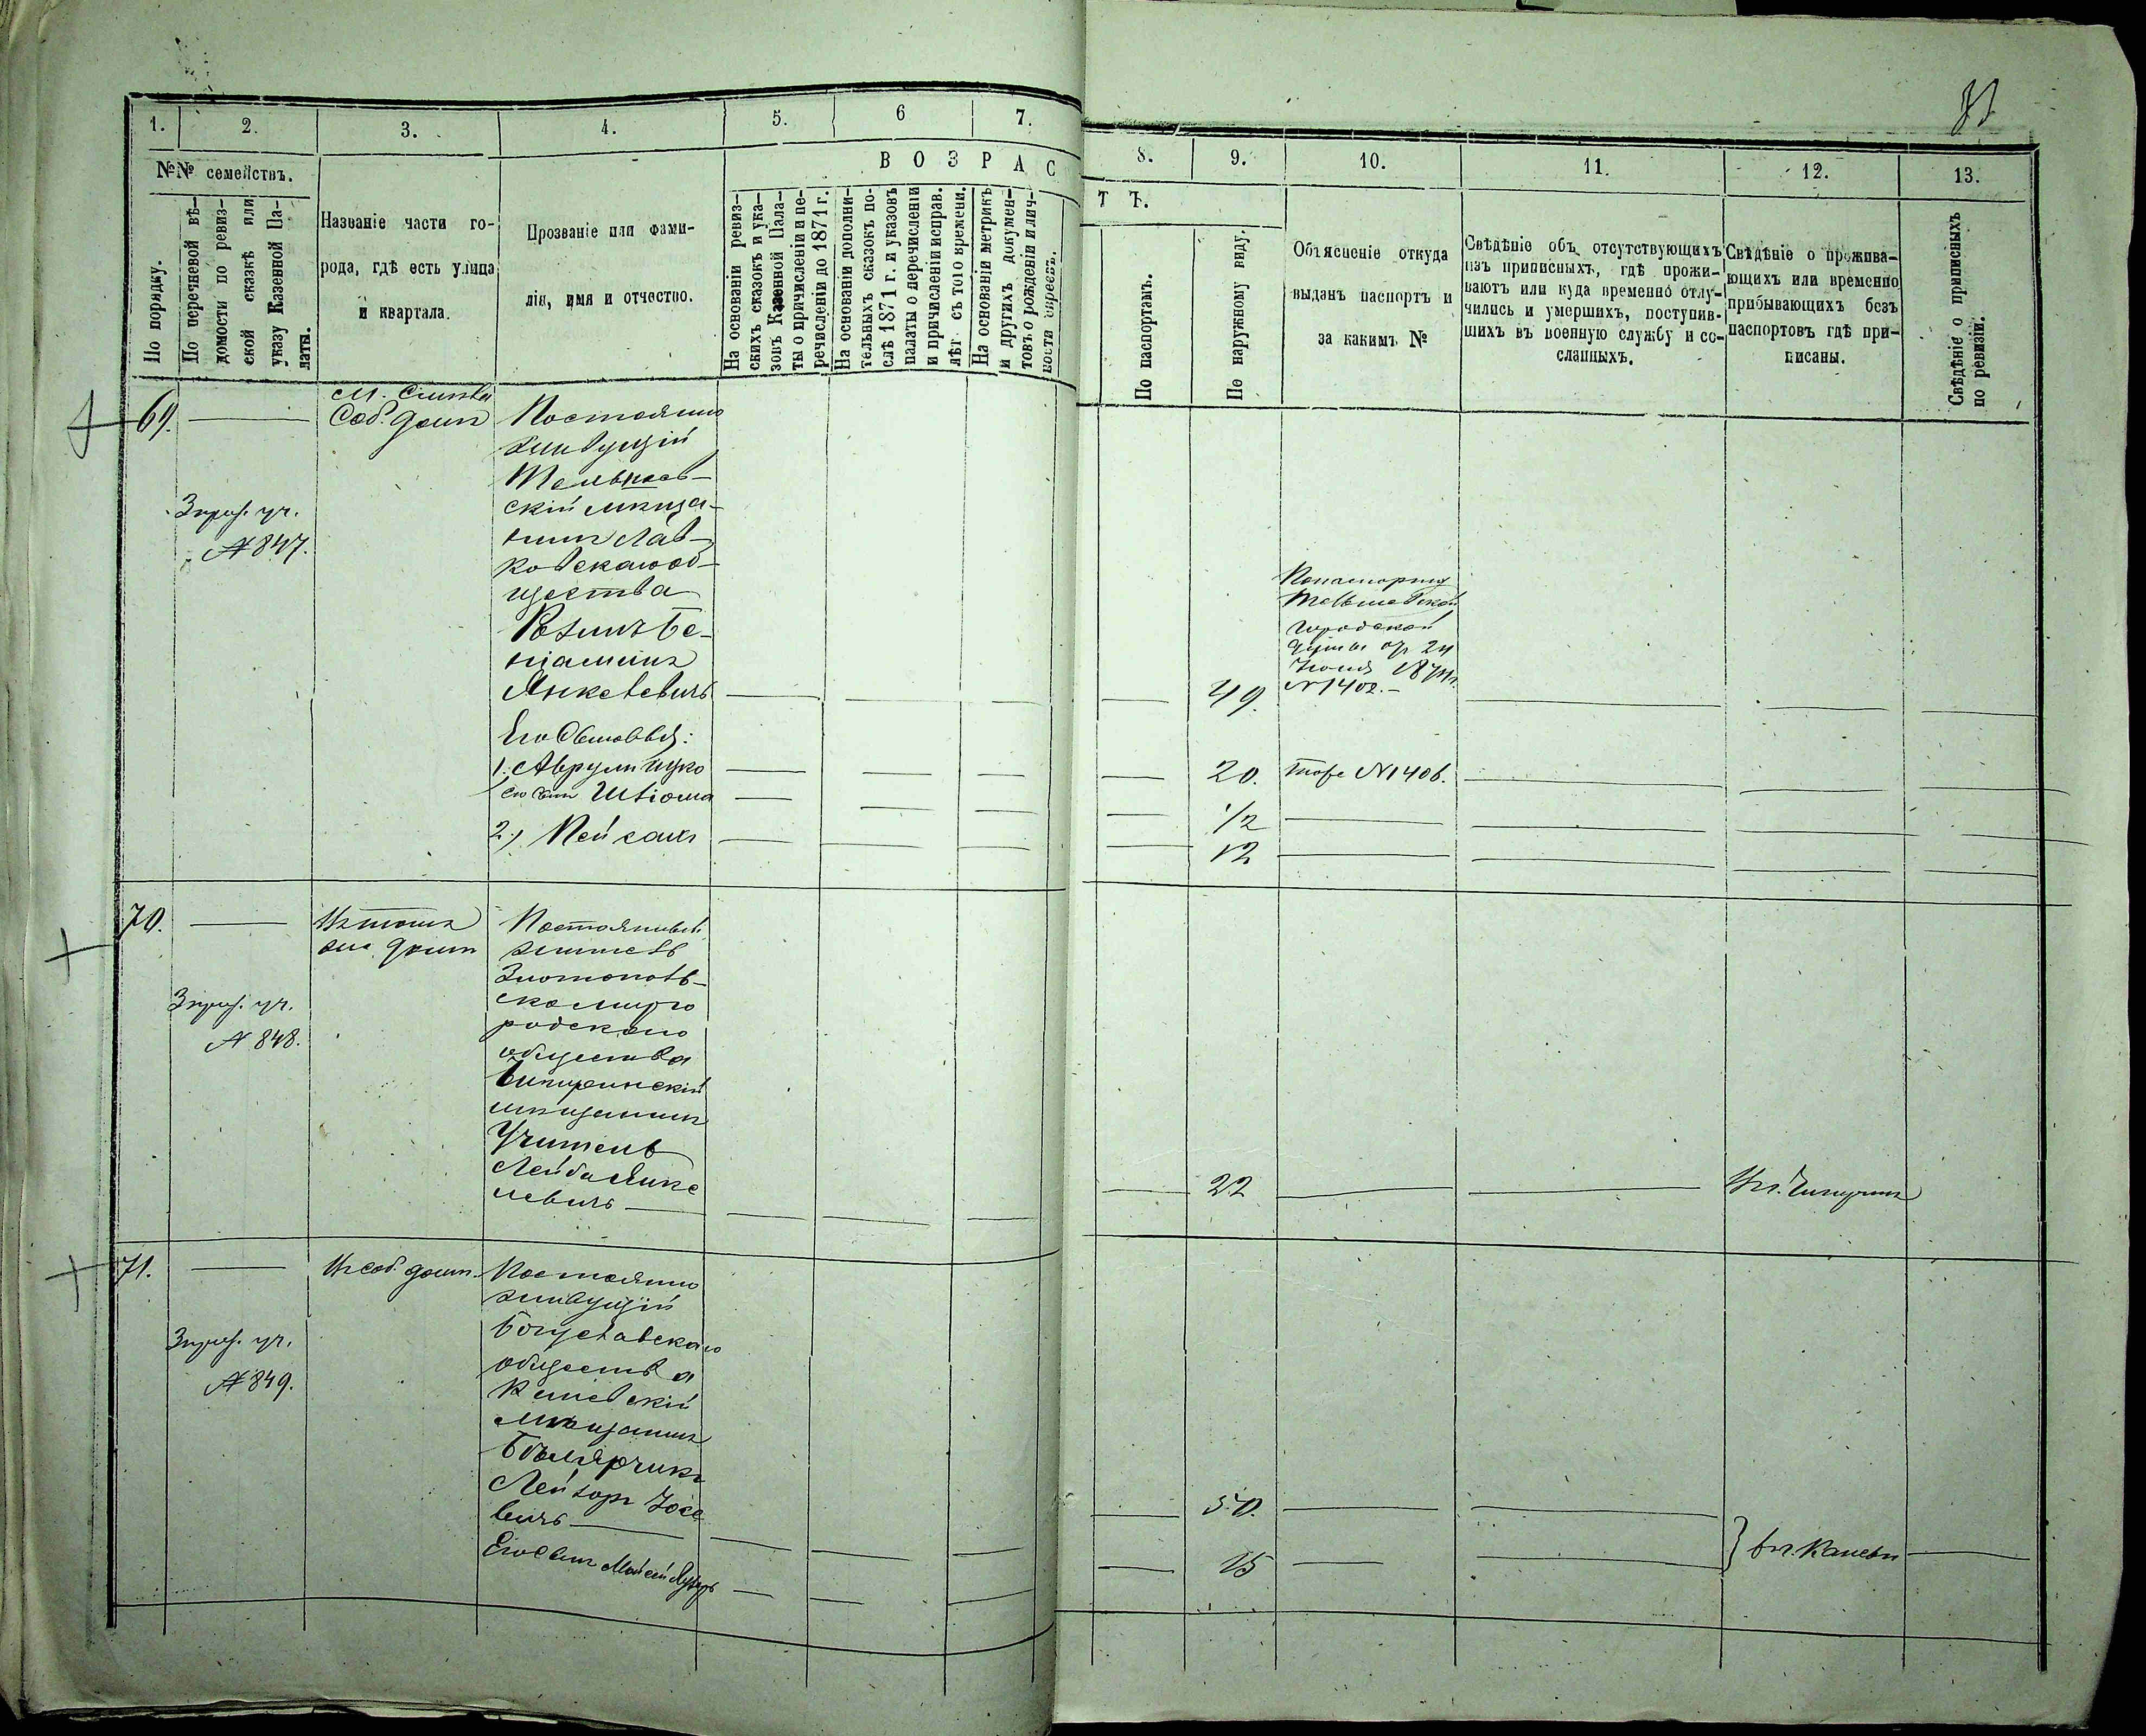 1.
2.
3.
4.
5.
6
7.
8.
9.
10.
11.
12.
13.
№№ семействъ.
По порядку.
По перечневой вѣ-
домости по ревиз-
ской сказкѣ или
указу Казенной Па-
латы.
Названіе части го-
рода, гдѣ есть улица
и квартала.
Прозваніе или фами-
лія, имя и отчество.
ВОЗРАС
ТЪ.
На основаніи ревиз-
скихъ сказокъ и ука-
зовъ Казенной Пала-
ты о причисленіи и пе-
речисленіи до 1871 г.
На основаніи дополни-
тельныхъ сказокъ по-
слѣ 1871 г. и указовъ
палаты о перечисленіи
и причисленіи исправ.
лѣт съ того времени.
На основаніи метрикъ
и другихъ докумен-
товъ о рожденіи и лич-
ности евреевъ.
По паспортамъ.
По наружному виду.
Объясненіе откуда
выданъ паспортъ и
за какимъ №
Свѣдѣніе объ отсутствующихъ
изъ приписныхъ, гдѣ прожи-
ваютъ или куда временно отлу-
чились и умершихъ, поступив-
шихъ въ военную службу и со-
сланныхъ.
Свѣдѣніе о прожива-
ющихъ или временно
прибывающихъ безъ
паспортовъ гдѣ при-
писаны.
Свѣдѣніе о приписныхъ
по ревизіи.
69.
Соб. домъ
Постоянно
живущій
скій мѣща-
нинъ Лав-
ковскаго об-
щества
Бе-
ніаминъ
Янкелевичъ
49.
городской
думы от 24
№ 1402.
№ 847.
Его сыновья:
1, Аврумъ Ицко
20.
тоже № 1406.
его сынъ Шліома
1/2
2, Пейсахъ
12
70.
Въ томъ
же домѣ
Постоянный
житель
родскаго
общества
Чигиринскій
мѣщанинъ
Учитель
Лейба Янке
левичъ
22
Въ г. Чигиринѣ
№ 848.
71.
Въ соб. домѣ.
Постоянно
живущій
Богуславскаго
общества
Каневскій
мѣщанинъ
Лейзоръ Іосе
вичъ
50.
№ 849.
Его сынъ Мойсей
15
въ г. Каневѣ